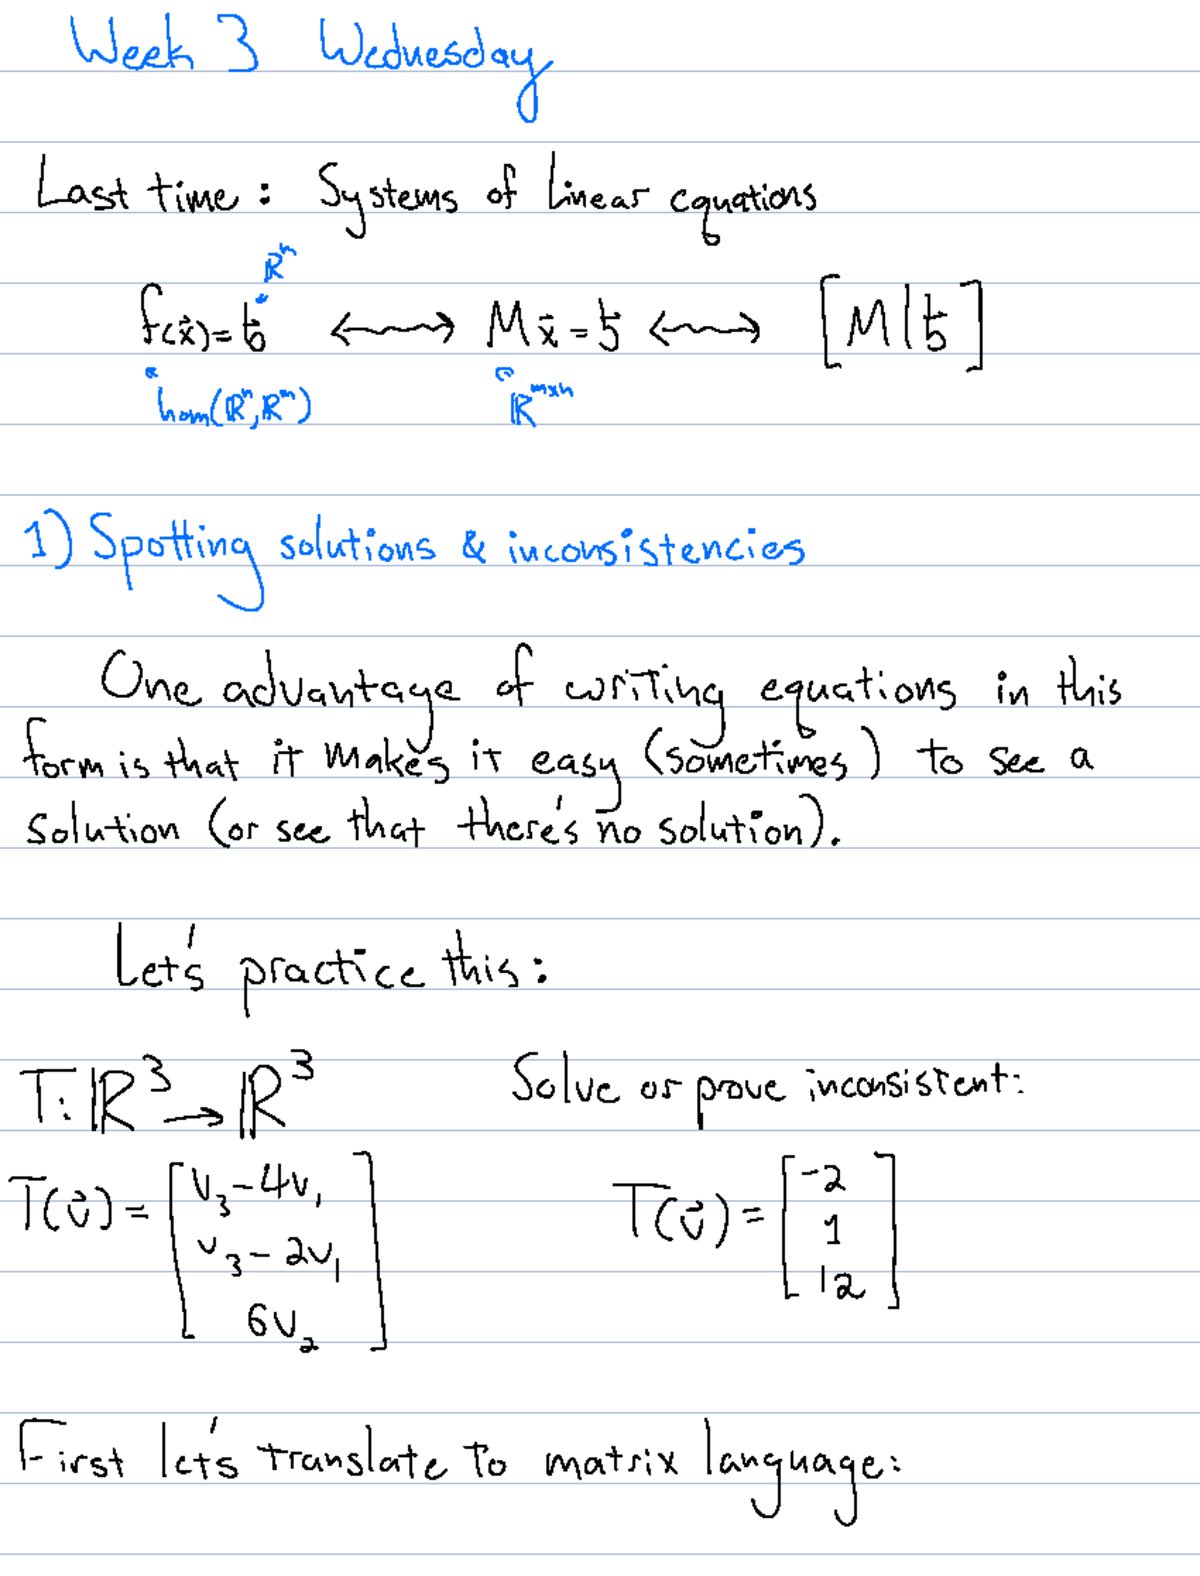 Week 3 Wednesday
Last time: Systems of Linear equations
ℝⁿ
f(x⃗)=b⃗ ⟷ Mx⃗=b⃗ ⟷ [M|b⃗]
hom(ℝⁿ,ℝᵐ) ℝᵐˣⁿ
1) Spotting solutions & inconsistencies
One advantage of writing equations in this
form is that it makes it easy (sometimes) to see a
solution (or see that there's no solution).
Let's practice this:
T: ℝ³ → ℝ³ Solve or prove inconsistent:
T(v⃗) = [v₃-4v₁ T(v⃗) = [-2
v₃-2v₁ 1
6v₂] 12]
First let's translate to matrix language: